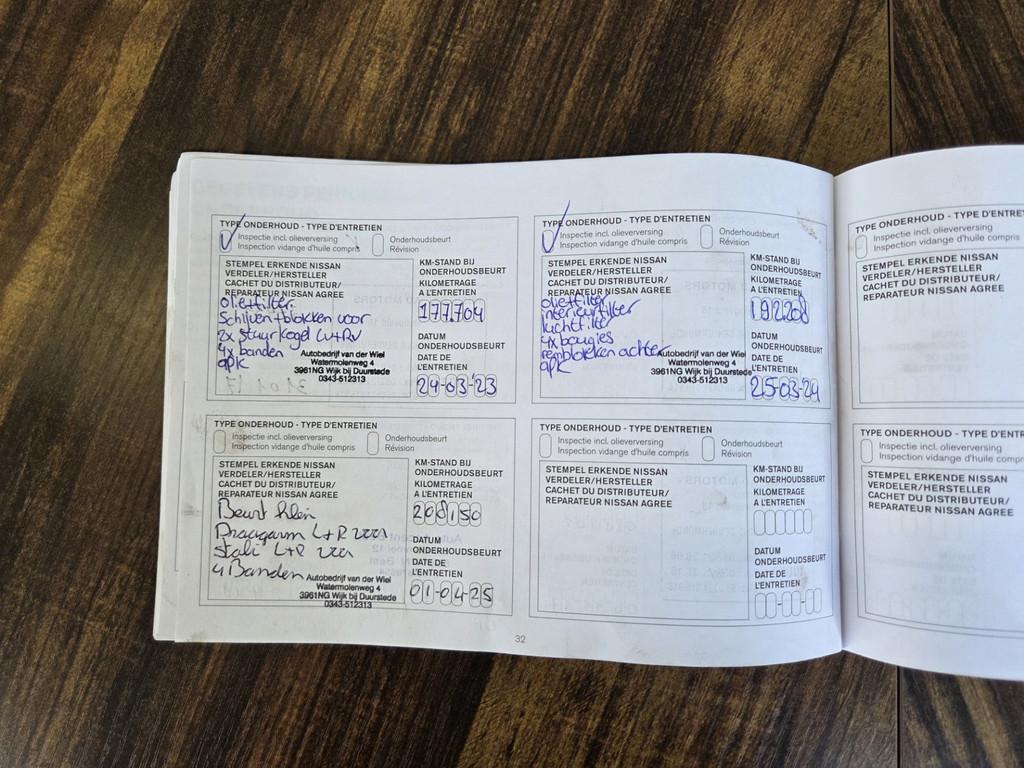 TYPE ONDERHOUD - TYPE D'ENTRETIEN
Inspectie incl. olieverversing
Inspection vidange d'huile compris
Onderhoudsbeurt
Révision
STEMPEL ERKENDE NISSAN
VERDELER/HERSTELLER
CACHET DU DISTRIBUTEUR/
REPARATEUR NISSAN AGREE
olie+filter
Schijven+blokken voor
2x stuurkogel L+R
4x banden
apk
Autobedrijf van der Wiel
Watermolenweg 4
3961NG Wijk bij Duurstede
0343-512313
KM-STAND BIJ
ONDERHOUDSBEURT
KILOMETRAGE
A L'ENTRETIEN
177.704
DATUM
ONDERHOUDSBEURT
DATE DE
L'ENTRETIEN
24-03-23
TYPE ONDERHOUD - TYPE D'ENTRETIEN
Inspectie incl. olieverversing
Inspection vidange d'huile compris
Onderhoudsbeurt
Révision
STEMPEL ERKENDE NISSAN
VERDELER/HERSTELLER
CACHET DU DISTRIBUTEUR/
REPARATEUR NISSAN AGREE
olie+filter
interieurfilter
luchtfilter
4x bougies
remblokken achter
apk
Autobedrijf van der Wiel
Watermolenweg 4
3961NG Wijk bij Duurstede
0343-512313
KM-STAND BIJ
ONDERHOUDSBEURT
KILOMETRAGE
A L'ENTRETIEN
192.208
DATUM
ONDERHOUDSBEURT
DATE DE
L'ENTRETIEN
25-03-24
TYPE ONDERHOUD - TYPE D'ENTRETIEN
Inspectie incl. olieverversing
Inspection vidange d'huile compris
Onderhoudsbeurt
Révision
STEMPEL ERKENDE NISSAN
VERDELER/HERSTELLER
CACHET DU DISTRIBUTEUR/
REPARATEUR NISSAN AGREE
Beurt klein
Draagarm L+R voor
Stabi L+R voor
4 Banden
Autobedrijf van der Wiel
Watermolenweg 4
3961NG Wijk bij Duurstede
0343-512313
KM-STAND BIJ
ONDERHOUDSBEURT
KILOMETRAGE
A L'ENTRETIEN
208150
DATUM
ONDERHOUDSBEURT
DATE DE
L'ENTRETIEN
01-04-25
TYPE ONDERHOUD - TYPE D'ENTRETIEN
Inspectie incl. olieverversing
Inspection vidange d'huile compris
Onderhoudsbeurt
Révision
STEMPEL ERKENDE NISSAN
VERDELER/HERSTELLER
CACHET DU DISTRIBUTEUR/
REPARATEUR NISSAN AGREE
KM-STAND BIJ
ONDERHOUDSBEURT
KILOMETRAGE
A L'ENTRETIEN
DATUM
ONDERHOUDSBEURT
DATE DE
L'ENTRETIEN
32
TYPE ONDERHOUD - TYPE D'ENTRE
Inspectie incl. olieverversing
Inspection vidange d'huile comp
STEMPEL ERKENDE NISSAN
VERDELER/HERSTELLER
CACHET DU DISTRIBUTEUR/
REPARATEUR NISSAN AGREE
TYPE ONDERHOUD - TYPE D'ENTR
Inspectie incl. olieverversing
Inspection vidange d'huile comp
STEMPEL ERKENDE NISSAN
VERDELER/HERSTELLER
CACHET DU DISTRIBUTEUR/
REPARATEUR NISSAN AGREE